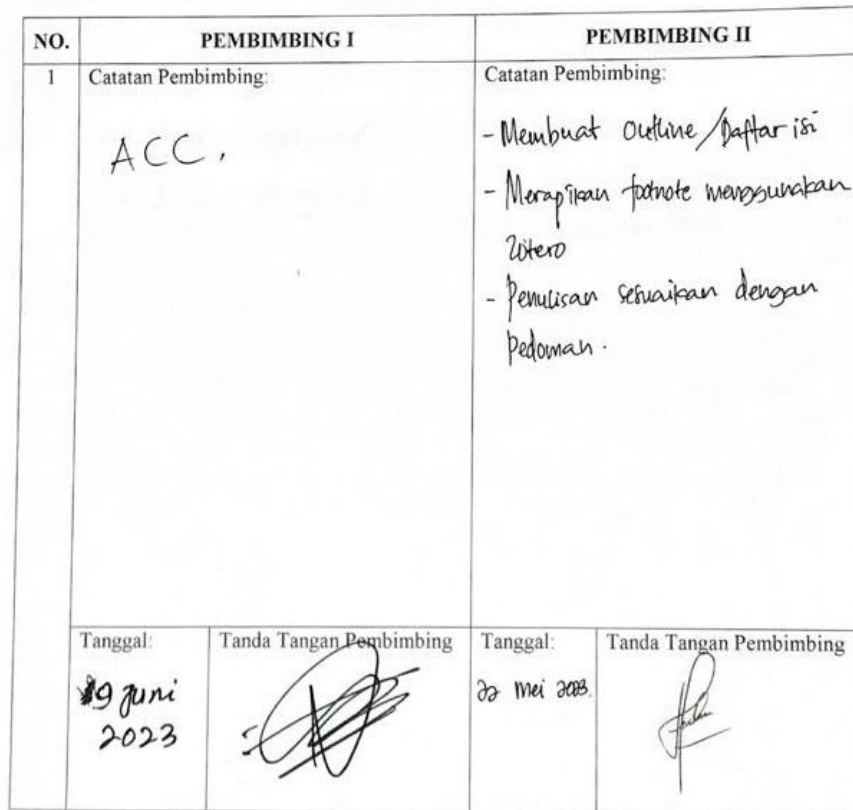 NO. PEMBIMBING I PEMBIMBING II
1 Catatan Pembimbing: Catatan Pembimbing:
ACC.
- Membuat Outline/Daftar isi
- Merapikan footnote menggunakan
Zotero
- Penulisan sesuaikan dengan
Pedoman.
Tanggal: Tanda Tangan Pembimbing Tanggal: Tanda Tangan Pembimbing
Juni 22 Mei 2023.
2023